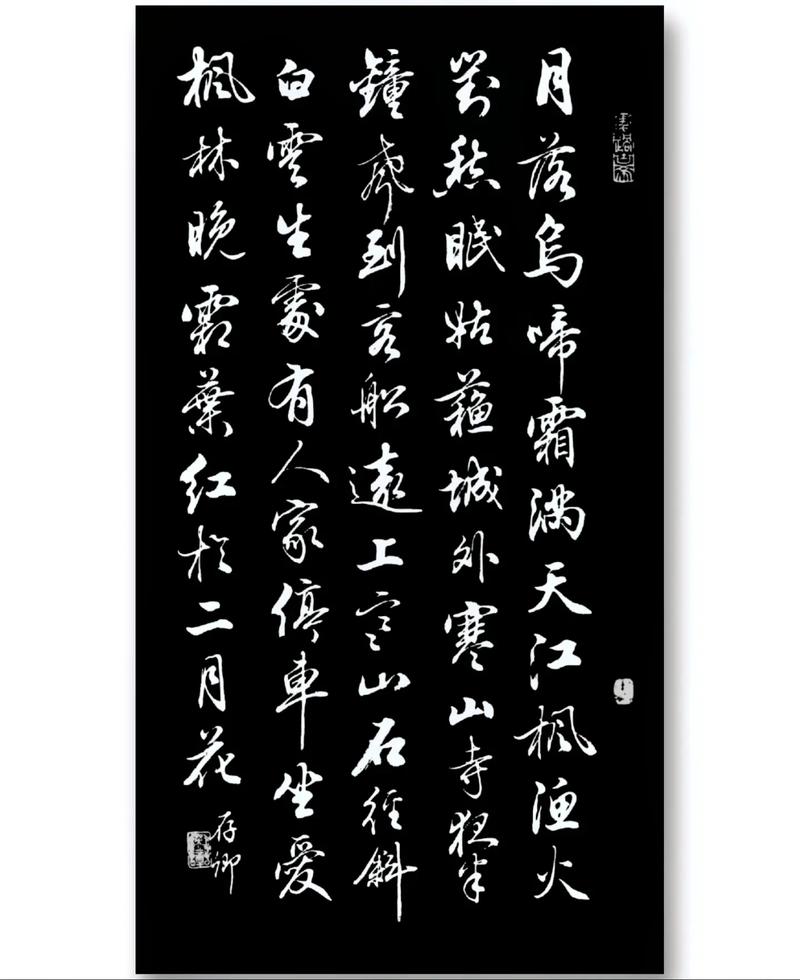 月落烏啼霜滿天江楓漁火
對愁眠姑蘇城外寒山寺夜半
鐘聲到客船遠上寒山石徑斜
白雲生處有人家停車坐愛
楓林晚霜葉紅於二月花
存卿